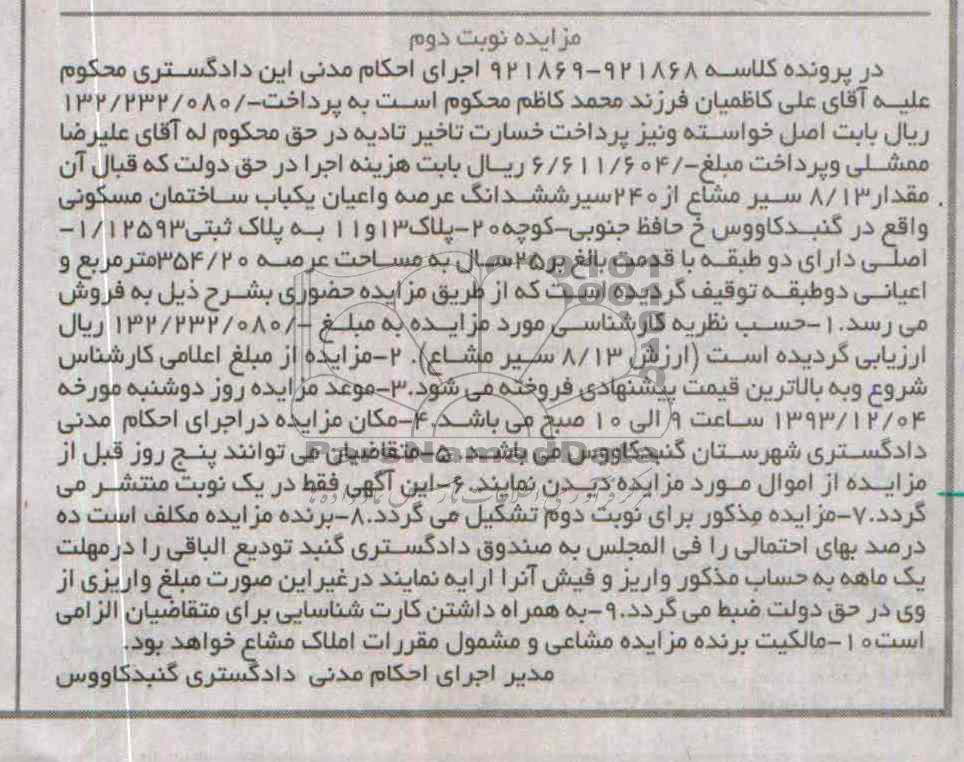 مزایده نوبت دوم
در پرونده کلاسه ۹۲۱۸۶۸-۹۲۱۸۶۹ اجرای احکام مدنی این دادگستری محکوم
علیه آقای علی کاظمیان فرزند محمد کاظم محکوم است به پرداخت-/۱۳۲/۲۳۲/۰۸۰
ریال بابت اصل خواسته ونیز پرداخت خسارت تاخیر تادیه در حق محکوم له آقای علیرضا
ممشلی وپرداخت مبلغ-/۶/۶۱۱/۶۰۴ ریال بابت هزینه اجرا در حق دولت که قبال آن
مقدار۸/۱۳ سیر مشاع از۲۴۰سیرششدانگ عرصه واعیان یکباب ساختمان مسکونی
واقع در گنبدکاووس خ حافظ جنوبی-کوچه۲۰-پلاک۱۳و۱۱ به پلاک ثبتی۱/۱۲۵۹۳-
اصلی دارای دو طبقه با قدمت بالغ بر۲۵سال به مساحت عرصه ۳۵۴/۲۰مترمربع و
اعیانی دوطبقه توقیف گردیده است که از طریق مزایده حضوری بشرح ذیل به فروش
می رسد.۱-حسب نظریه کارشناسی مورد مزایده به مبلغ -/۱۳۲/۲۳۲/۰۸۰ ریال
ارزیابی گردیده است (ارزش ۸/۱۳ سیر مشاع). ۲-مزایده از مبلغ اعلامی کارشناس
شروع وبه بالاترین قیمت پیشنهادی فروخته می شود.۳-موعد مزایده روز دوشنبه مورخه
۱۳۹۳/۱۲/۰۴ ساعت ۹ الی ۱۰ صبح می باشد.۴-مکان مزایده دراجرای احکام مدنی
دادگستری شهرستان گنبدکاووس می باشد. ۵-متقاضیان می توانند پنج روز قبل از
مزایده از اموال مورد مزایده دیدن نمایند.۶-این آگهی فقط در یک نوبت منتشر می
گردد.۷-مزایده مذکور برای نوبت دوم تشکیل می گردد.۸-برنده مزایده مکلف است ده
درصد بهای احتمالی را فی المجلس به صندوق دادگستری گنبد تودیع الباقی را درمهلت
یک ماهه به حساب مذکور واریز و فیش آنرا ارایه نمایند درغیراین صورت مبلغ واریزی از
وی در حق دولت ضبط می گردد.۹-به همراه داشتن کارت شناسایی برای متقاضیان الزامی
است۱۰-مالکیت برنده مزایده مشاعی و مشمول مقررات املاک مشاع خواهد بود.
مدیر اجرای احکام مدنی دادگستری گنبدکاووس